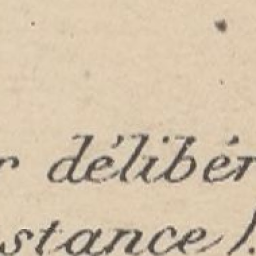 r délibér
stance).